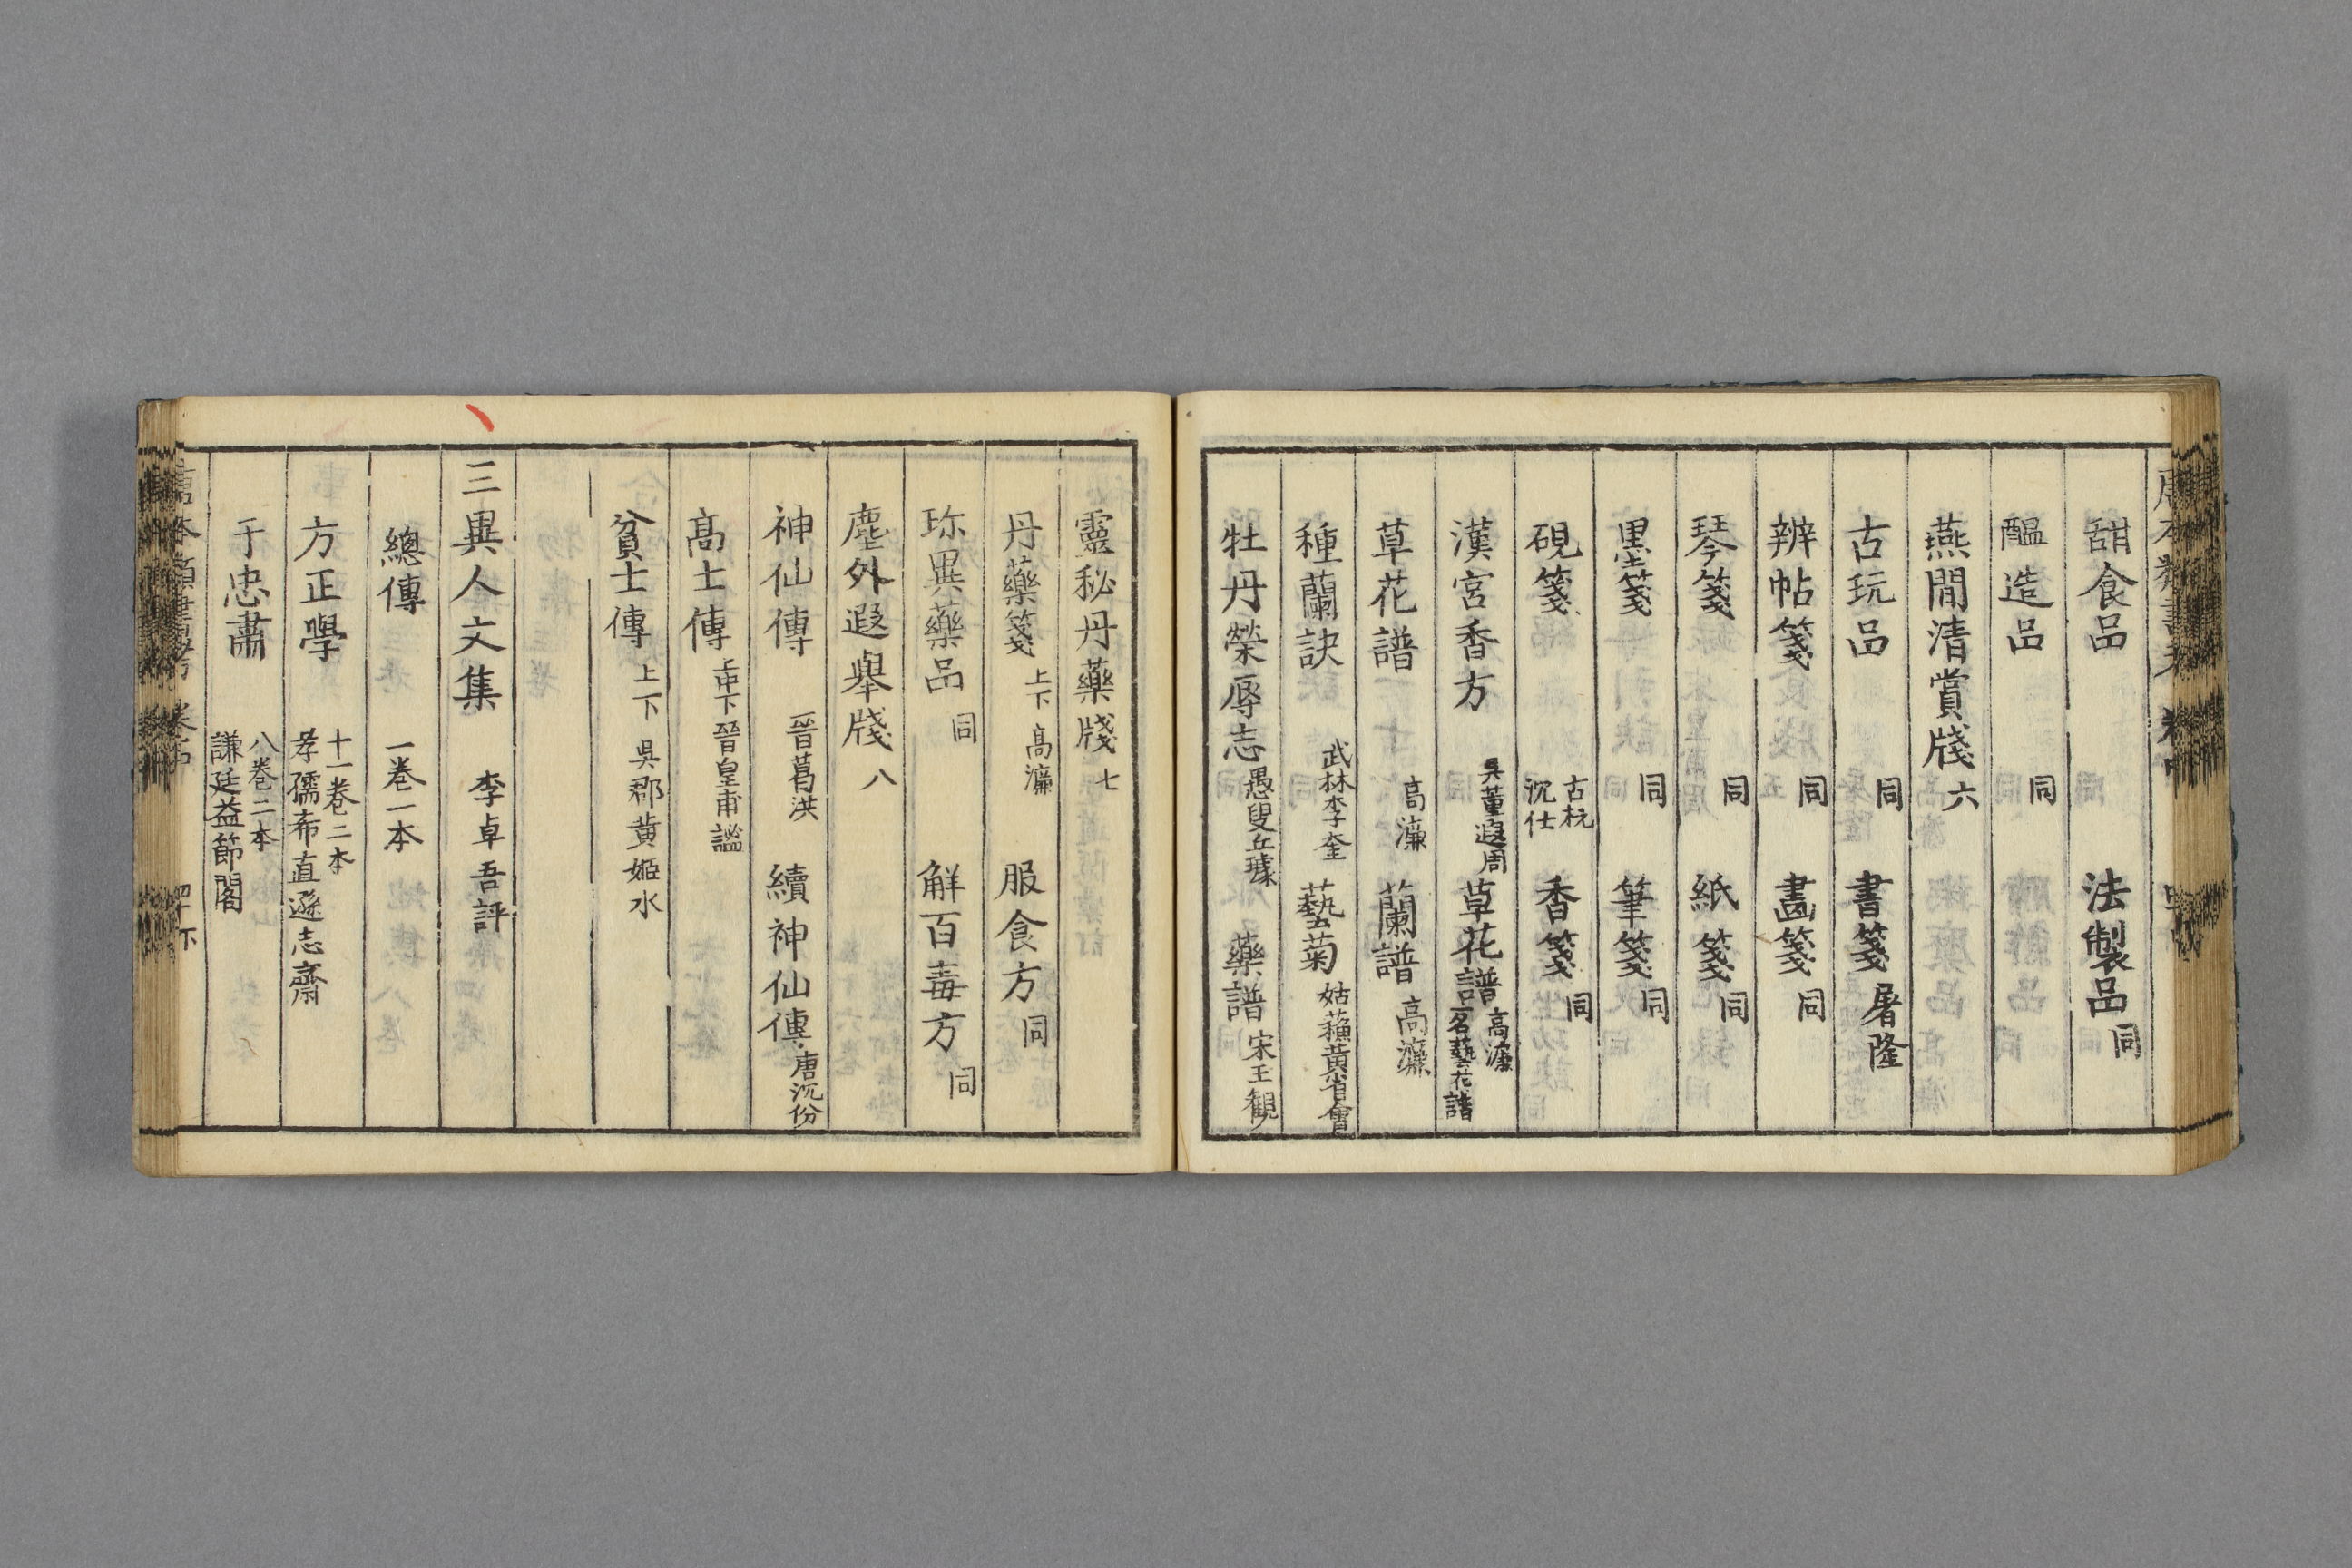 甜食品　法製品 同
醞造品 同
燕閒清賞牋 六
古玩品 同　書箋 屠隆
辨帖箋 同　畫箋 同
琴箋 同　紙箋 同
墨箋 同　筆箋 同
硯箋 古杭 沉仕　香箋 同
漢宮香方 吳董遐周　草花譜 高濂 一名藝花譜
草花譜 高濂　蘭譜 高濂
種蘭訣 武林李奎　藝菊 姑蘓黃省會
牡丹榮辱志 愚叟丘璩　藥譜 宋王観
靈秘丹藥牋 七
丹藥箋 上下 高濂　服食方 同
珎異藥品 同　解百毒方 同
塵外遐舉牋 八
神仙傳 晉葛洪　續神仙傳 唐沉份
髙士傳 上中下 晉皇甫謐
貧士傳 上下 吳郡黃姬水
三異人文集 李卓吾評
總傳 一卷一本
方正學 十一卷二本 孝孺希直遜志齋
于忠肅 八卷二本 謙廷益節闇